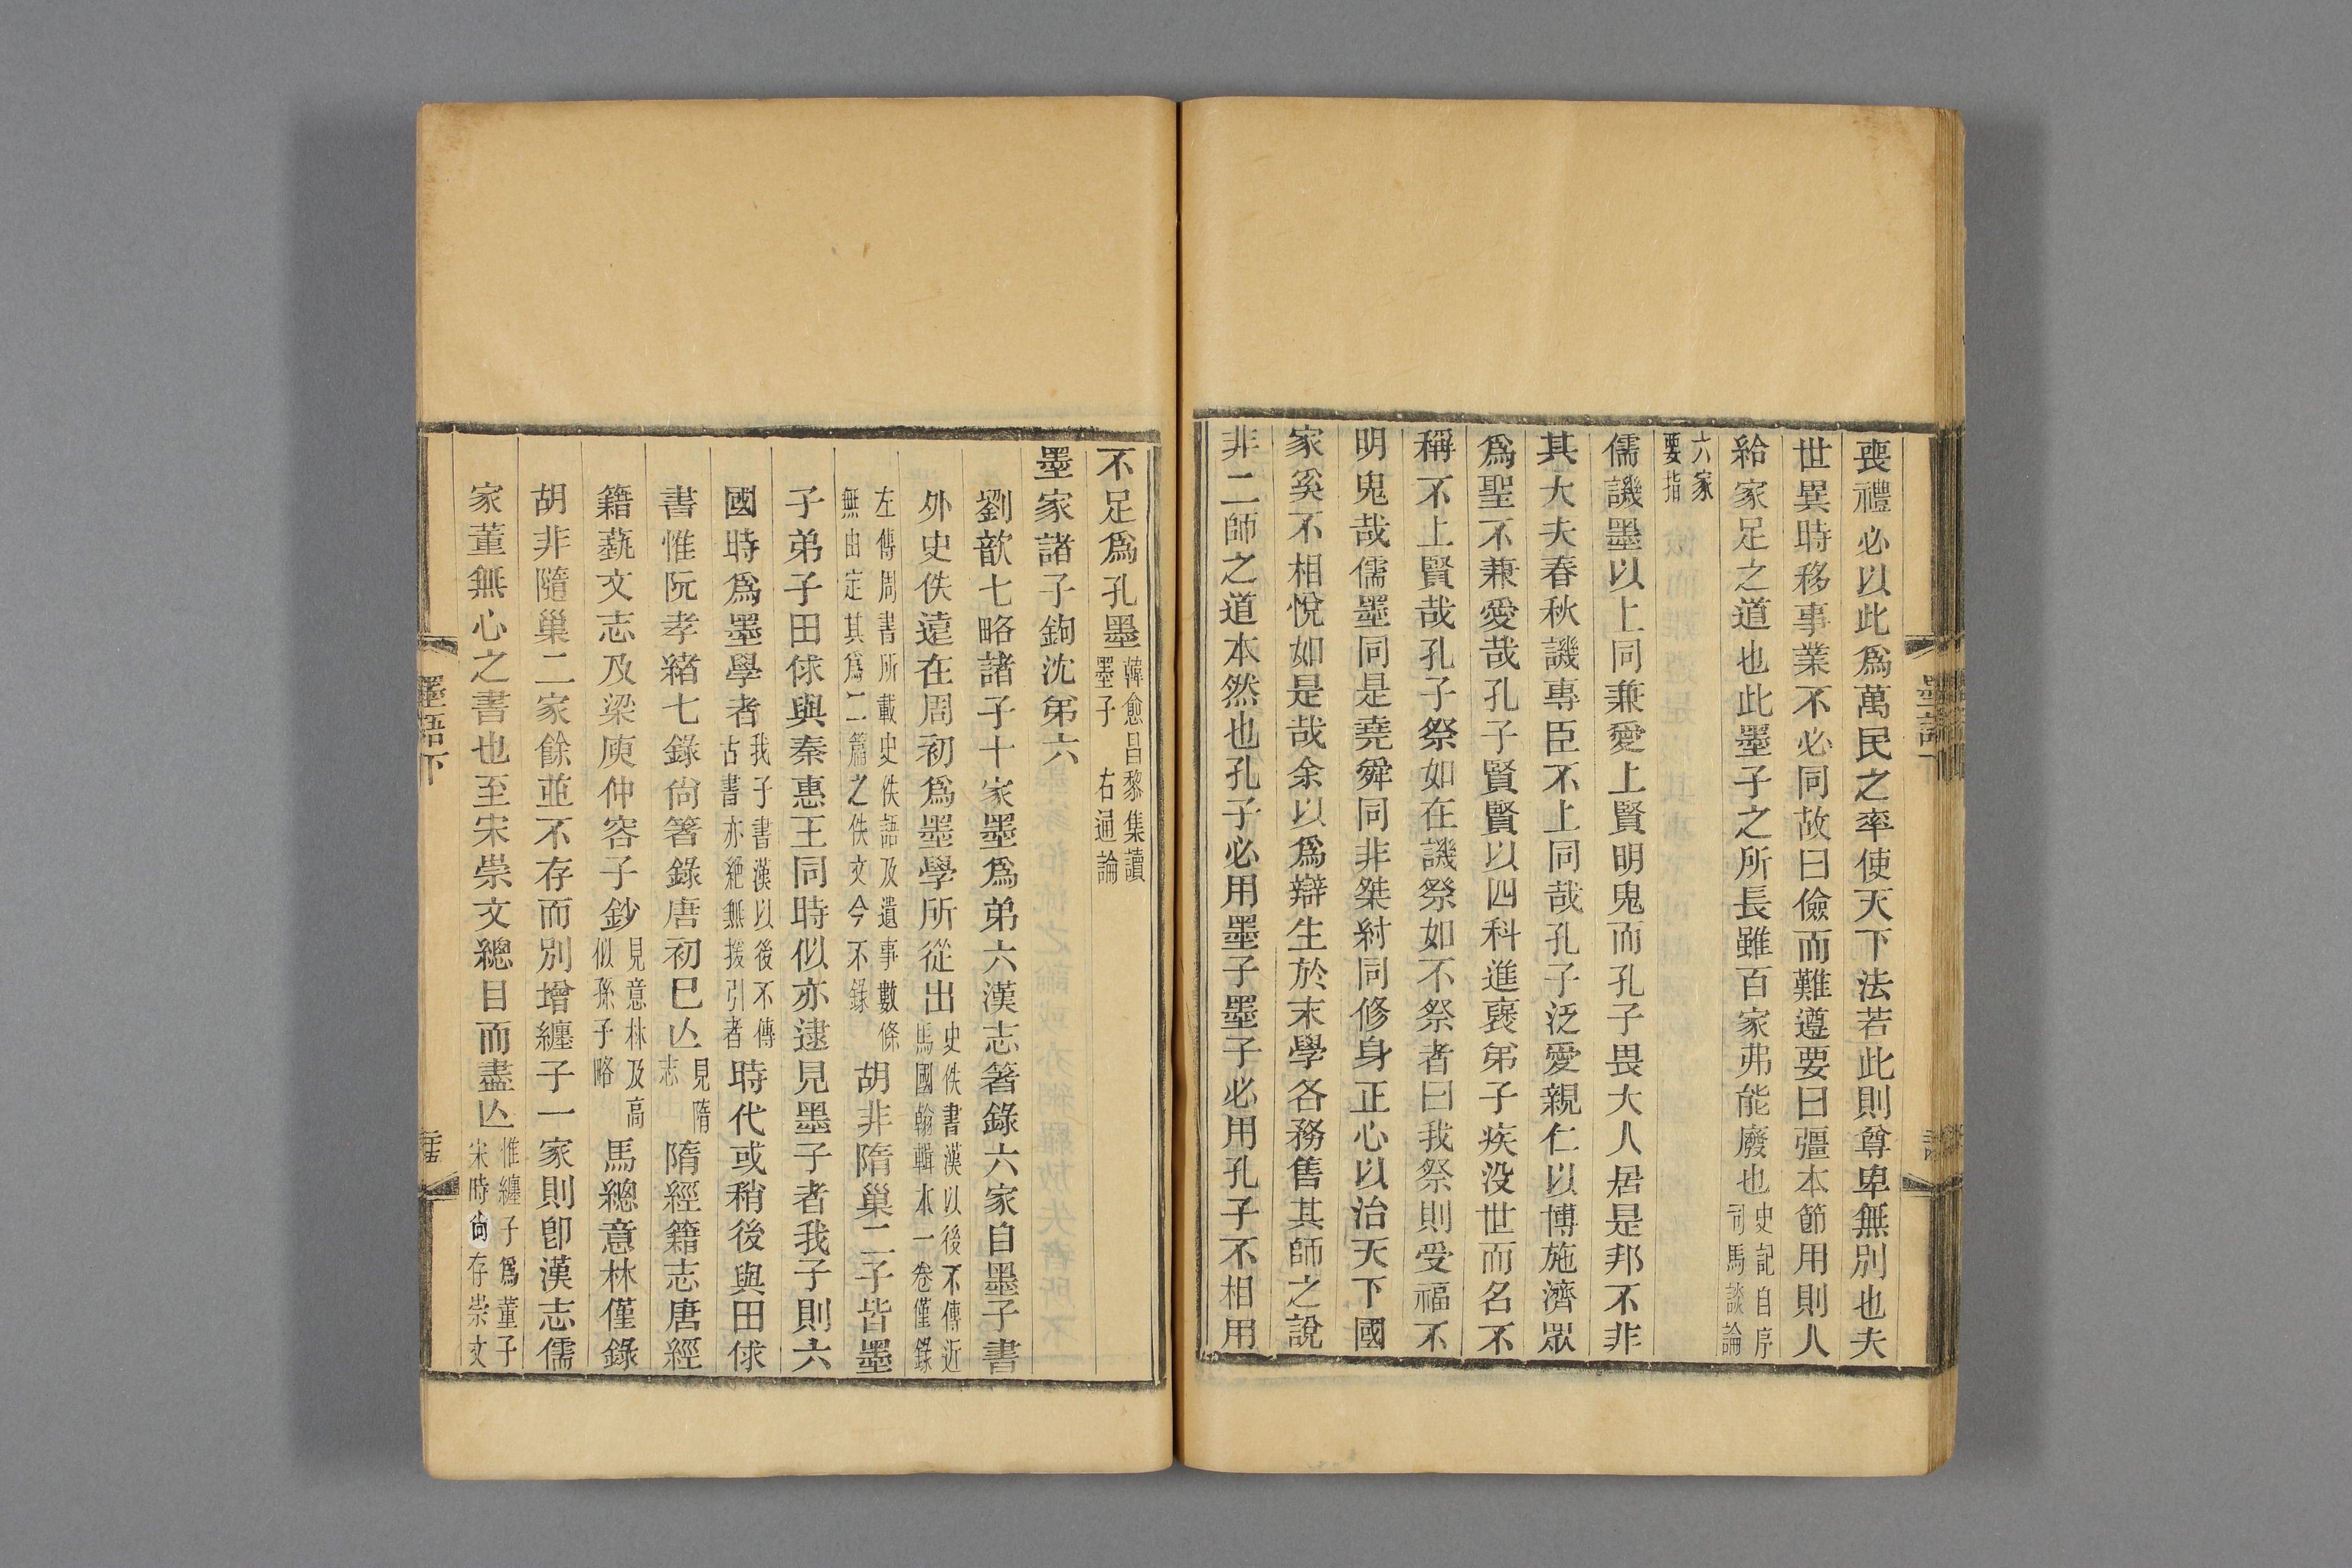 喪禮必以此爲萬民之率使天下法若此則尊卑無別也夫
世異時移事業不必同故曰儉而難遵要曰彊本節用則人
給家足之道也此墨子之所長雖百家弗能廢也史記自序司馬談論
六家要指
儒譏墨以上同兼愛上賢明鬼而孔子畏大人居是邦不非
其大夫春秋譏專臣不上同哉孔子泛愛親仁以博施濟眾
爲聖不兼愛哉孔子賢賢以四科進襃弟子疾没世而名不
稱不上賢哉孔子祭如在譏祭如不祭者曰我祭則受福不
明鬼哉儒墨同是堯舜同非桀紂同修身正心以治天下國
家奚不相悅如是哉余以爲辯生於末學各務售其師之說
非二師之道本然也孔子必用墨子墨子必用孔子不相用
不足爲孔墨韓愈昌黎集讀墨子 右通論
墨家諸子鉤沈弟六
劉歆七略諸子十家墨爲弟六漢志箸錄六家自墨子書
外史佚遠在周初爲墨學所從出史佚書漢以後不傳近馬國翰輯本一卷僅錄
左傳周書所載史佚語及遺事數條無由定其爲二篇之佚文今不錄胡非隋巢二子皆墨
子弟子田俅與秦惠王同時似亦逮見墨子者我子則六
國時爲墨學者我子書漢以後不傳古書亦絕無援引者時代或稍後與田俅
書惟阮孝緒七錄尙箸錄唐初已亾見隋志隋經籍志唐經
籍蓺文志及梁庾仲容子鈔見意林及高似孫子略馬總意林僅錄
胡非隨巢二家餘並不存而別增纏子一家則卽漢志儒
家董無心之書也至宋崇文總目而盡亾惟纏子爲董子宋時尙存崇文
墨語下